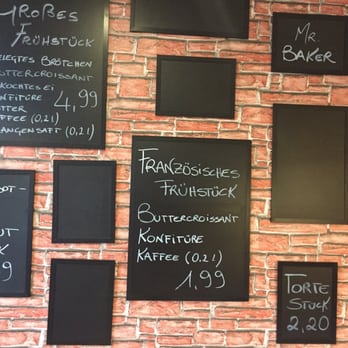 GROßES
FRÜHSTÜCK
BELEGTES BRÖTCHEN
BUTTERCROISSANT
GEKOCHTES EI
KONFITÜRE
BUTTER 4,99
KAFFEE (0,2l)
ORANGENSAFT (0,2l)
MR.
BAKER
FRANZÖSISCHES
FRÜHSTÜCK
BUTTERCROISSANT
KONFITÜRE
KAFFEE (0,2l)
1,99
TORTE
STÜCK
2,20